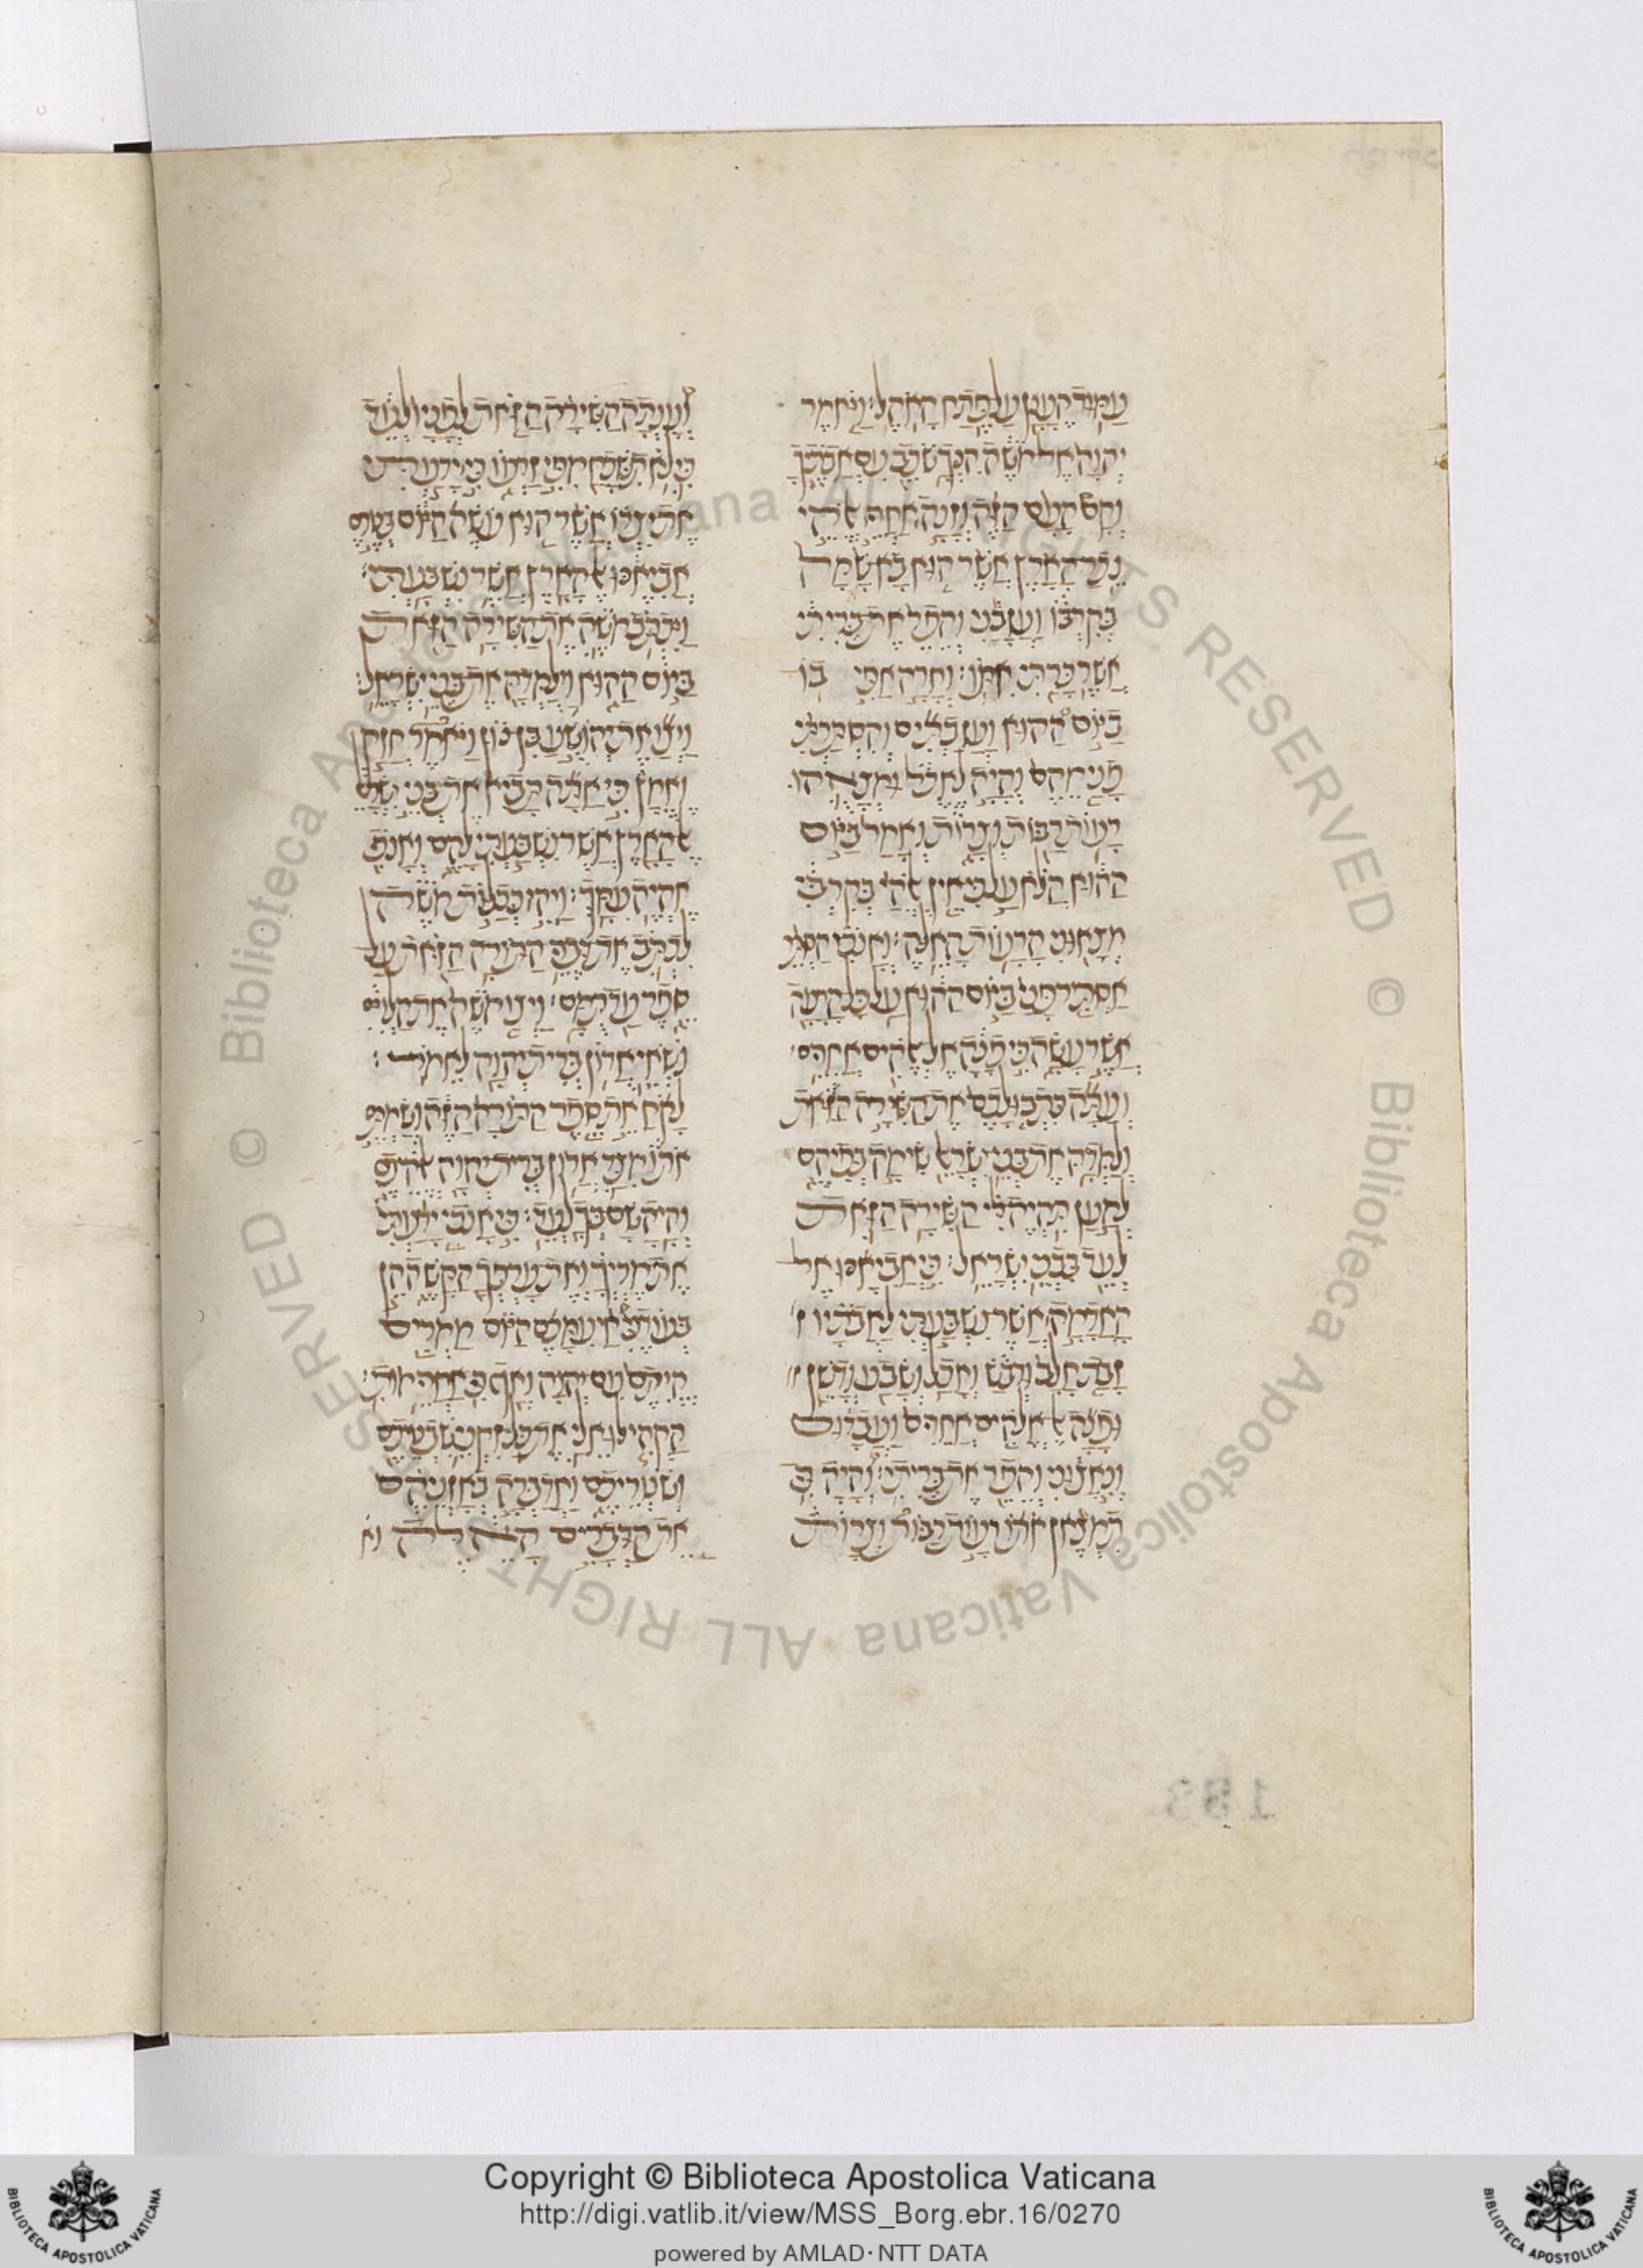 עמוד הענן על פתח האהל: ויאמר
יהוה אל משה הנך שכב עם אבתיך
וקם העם הזה וזנה אחרי אלהי
נכר הארץ אשר הוא בא שמה
בקרבו ועזבני והפר את בריתי
אשר כרתי אתו: וחרה אפי בו
ביום ההוא ועזבתים והסתרתי
פני מהם והיה לאכל ומצאהו
רעות רבות וצרות ואמר ביום
ההוא הלא על כי אין אלהי בקרבי
מצאוני הרעות האלה: ואנכי הסתר
אסתיר פני ביום ההוא על כל הרעה
אשר עשה כי פנה אל אלהים אחרים:
ועתה כתבו לכם את השירה הזאת
ולמדה את בני ישראל שימה בפיהם
למען תהיה לי השירה הזאת
לעד בבני ישראל: כי אביאנו אל
האדמה אשר נשבעתי לאבתיו
זבת חלב ודבש ואכל ושבע ודשן
ופנה אל אלהים אחרים ועבדום
ונאצוני והפר את בריתי: והיה כי
תמצאן אתו רעות רבות וצרות
וענתה השירה הזאת לפניו לעד
כי לא תשכח מפי זרעו כי ידעתי
את יצרו אשר הוא עשה היום בטרם
אביאנו אל הארץ אשר נשבעתי:
ויכתב משה את השירה הזאת
ביום ההוא וילמדה את בני ישראל:
ויצו את יהושע בן נון ויאמר חזק
ואמץ כי אתה תביא את בני ישראל
אל הארץ אשר נשבעתי להם ואנכי
אהיה עמך: ויהי ככלות משה
לכתב את דברי התורה הזאת על
ספר עד תמם: ויצו משה את הלוים
נשאי ארון ברית יהוה לאמר:
לקח את ספר התורה הזה ושמתם
אתו מצד ארון ברית יהוה אלהיכם
והיה שם בך לעד: כי אנכי ידעתי
את מריך ואת ערפך הקשה הן
בעודני חי עמכם היום ממרים
הייתם עם יהוה ואף כי אחרי מותי:
הקהילו אלי את כל זקני שבטיכם
ושטריכם ואדברה באזניהם
את הדברים האלה וא
Biblioteca Apostolica Vaticana ALL RIGHTS RESERVED ©
Copyright © Biblioteca Apostolica Vaticana
http://digi.vatlib.it/view/MSS_Borg.ebr.16/0270
powered by AMLAD · NTT DATA
BIBLIOTECA APOSTOLICA VATICANA
BIBLIOTECA APOSTOLICA VATICANA